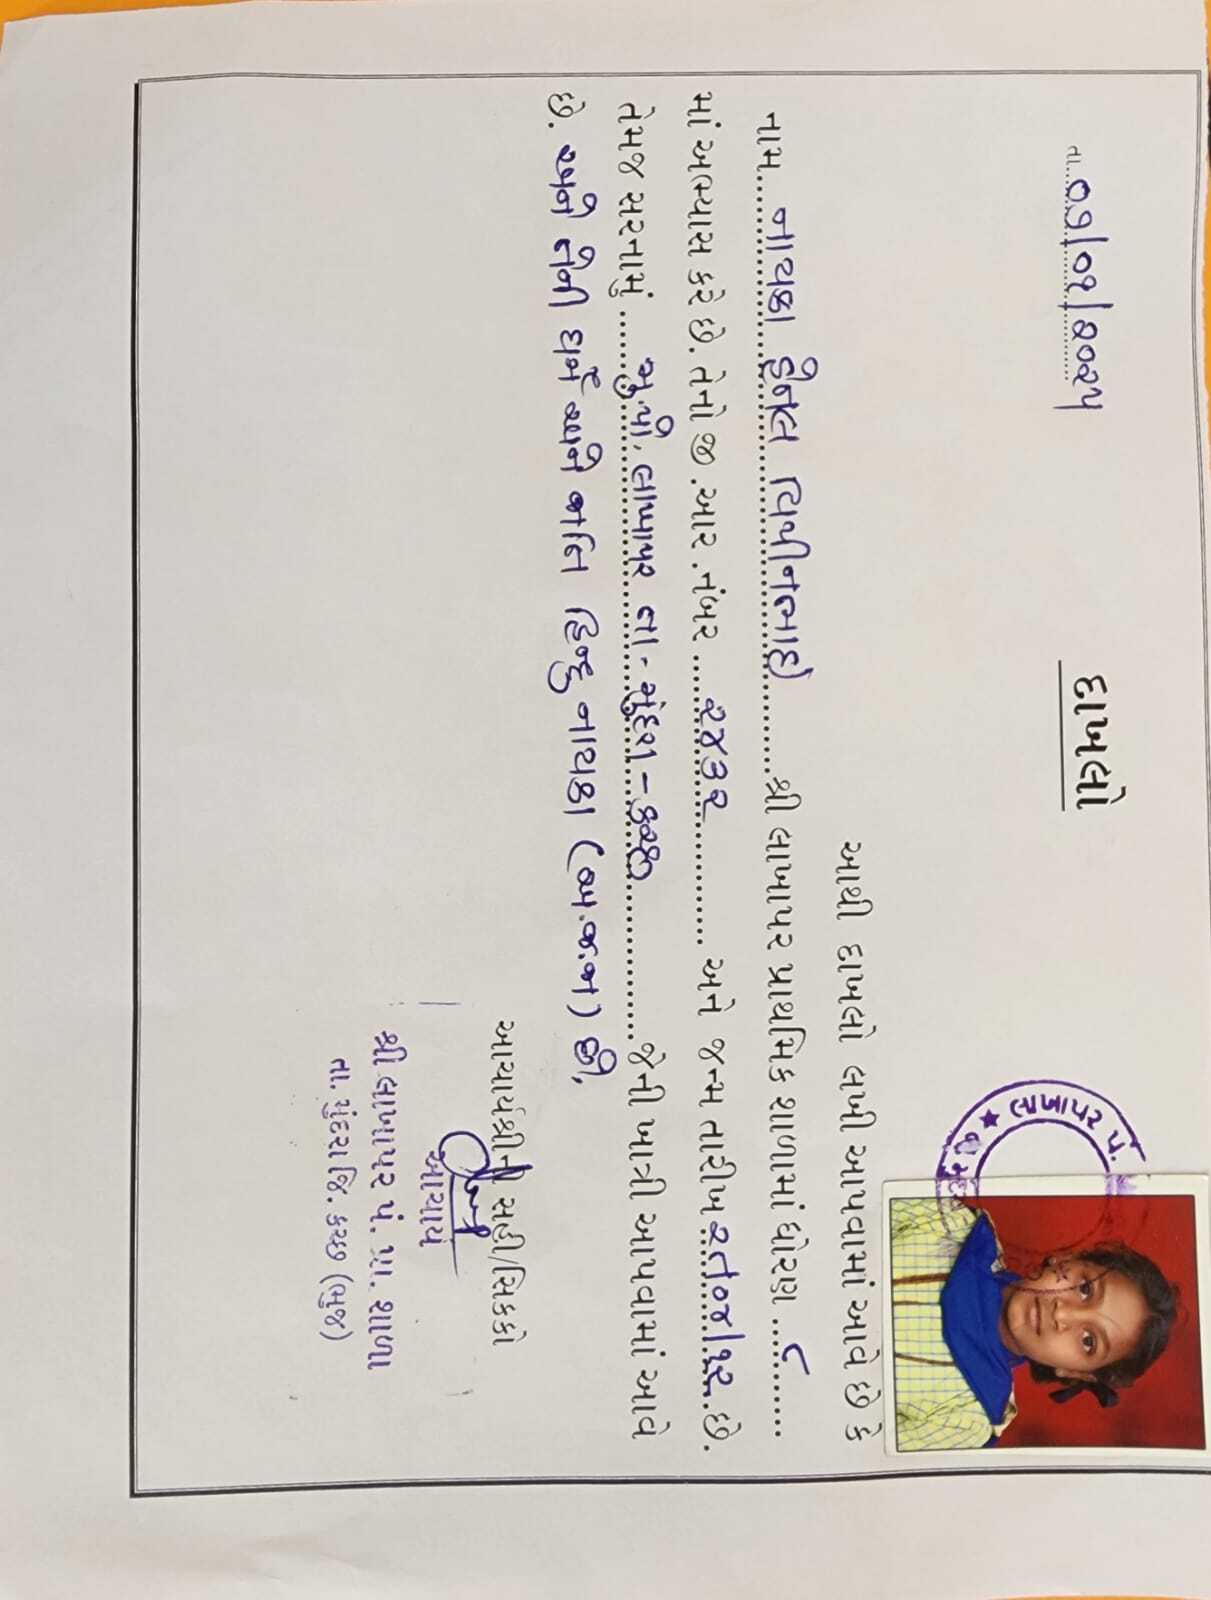 તા....૦૧/૦૧/૨૦૨૫
દાખલો
લાખાપર પં.
આથી દાખલો લખી આપવામાં આવે છે કે
નામ.... નાયકા હીનલ વિપીનભાઈ ....શ્રી લાખાપર પ્રાથમિક શાળામાં ધોરણ .... ૮ ....
માં અભ્યાસ કરે છે. તેનો જી .આર .નંબર .... ૨૪૩૨ .... અને જન્મ તારીખ .છે.
તેમજ સરનામું .... મુ.પો. લાખાપર તા. મુંદરા - કચ્છ ....જેની ખાત્રી આપવામાં આવે
છે. અને તેની ધર્મ અને જાતિ હિન્દુ નાયકા છે.
આચાર્યશ્રીની સહી/સિક્કો
આચાર્ય
શ્રી લાખાપર પં. પ્રા. શાળા
તા. મુંદરા જિ. કચ્છ (ભુજ)